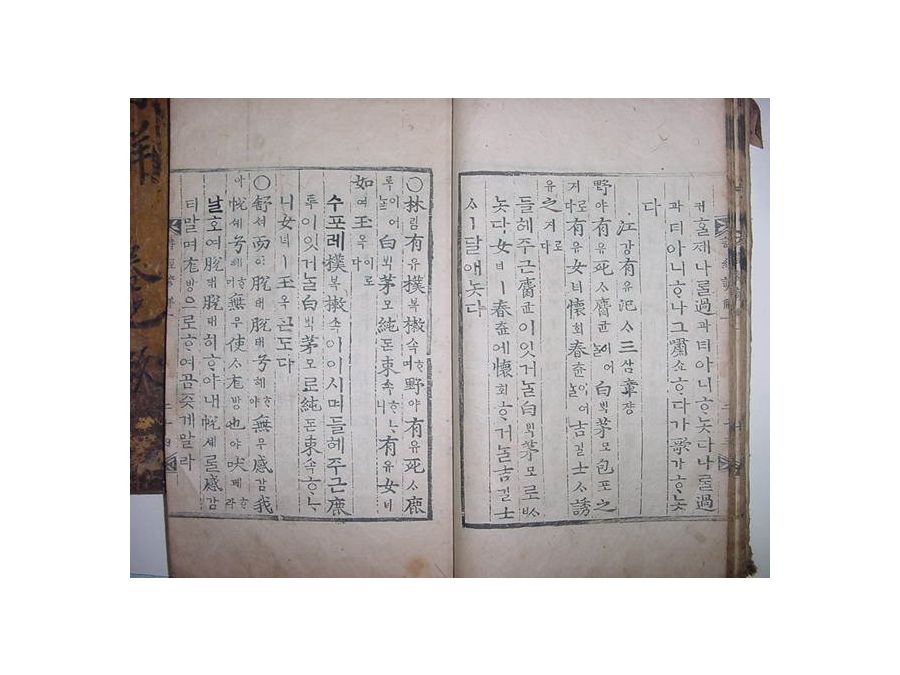 커홀제나ᄅᆞᆯ過과티아니ᄒᆞ놋다나ᄅᆞᆯ過
과티아니ᄒᆞ나그嘯쇼ᄒᆞ다가歌가ᄒᆞ놋
다
江강有유汜ᄉᆞ三삼章쟝
野야有유死ᄉᆞ麕균이어ᄂᆞᆯ白ᄇᆡᆨ茅모包포之
지로다有유女녀懷회春츈이어ᄂᆞᆯ吉길士ᄉᆞ誘
유之지로다
들헤주근麕균이잇거ᄂᆞᆯ白ᄇᆡᆨ茅모로ᄡᆞ
놋다女녀ㅣ春츈에懷회ᄒᆞ거ᄂᆞᆯ吉길士
ᄉᆞㅣ달애놋다
○林림有유樸복樕속ᄒᆞ며野야有유死ᄉᆞ鹿
록이어ᄂᆞᆯ白ᄇᆡᆨ茅모純돈束속ᄒᆞᄂᆞ니有유女녀
如여玉옥이로다
수포레樸복樕속이이시며들헤주근鹿
록이잇거ᄂᆞᆯ白ᄇᆡᆨ茅모로純돈束속ᄒᆞᄂᆞ
니女녀ㅣ玉옥ᄀᆞᆮ도다
○舒셔而이脫태脫태兮혜ᄒᆞ야無무感감我
아帨셰兮혜ᄒᆞ며無무使ᄉᆞ尨방也야吠폐ᄒᆞ라
날호여脫태脫태히ᄒᆞ야내帨셰ᄅᆞᆯ感감
티말며尨방으로ᄒᆞ여곰즛게말라